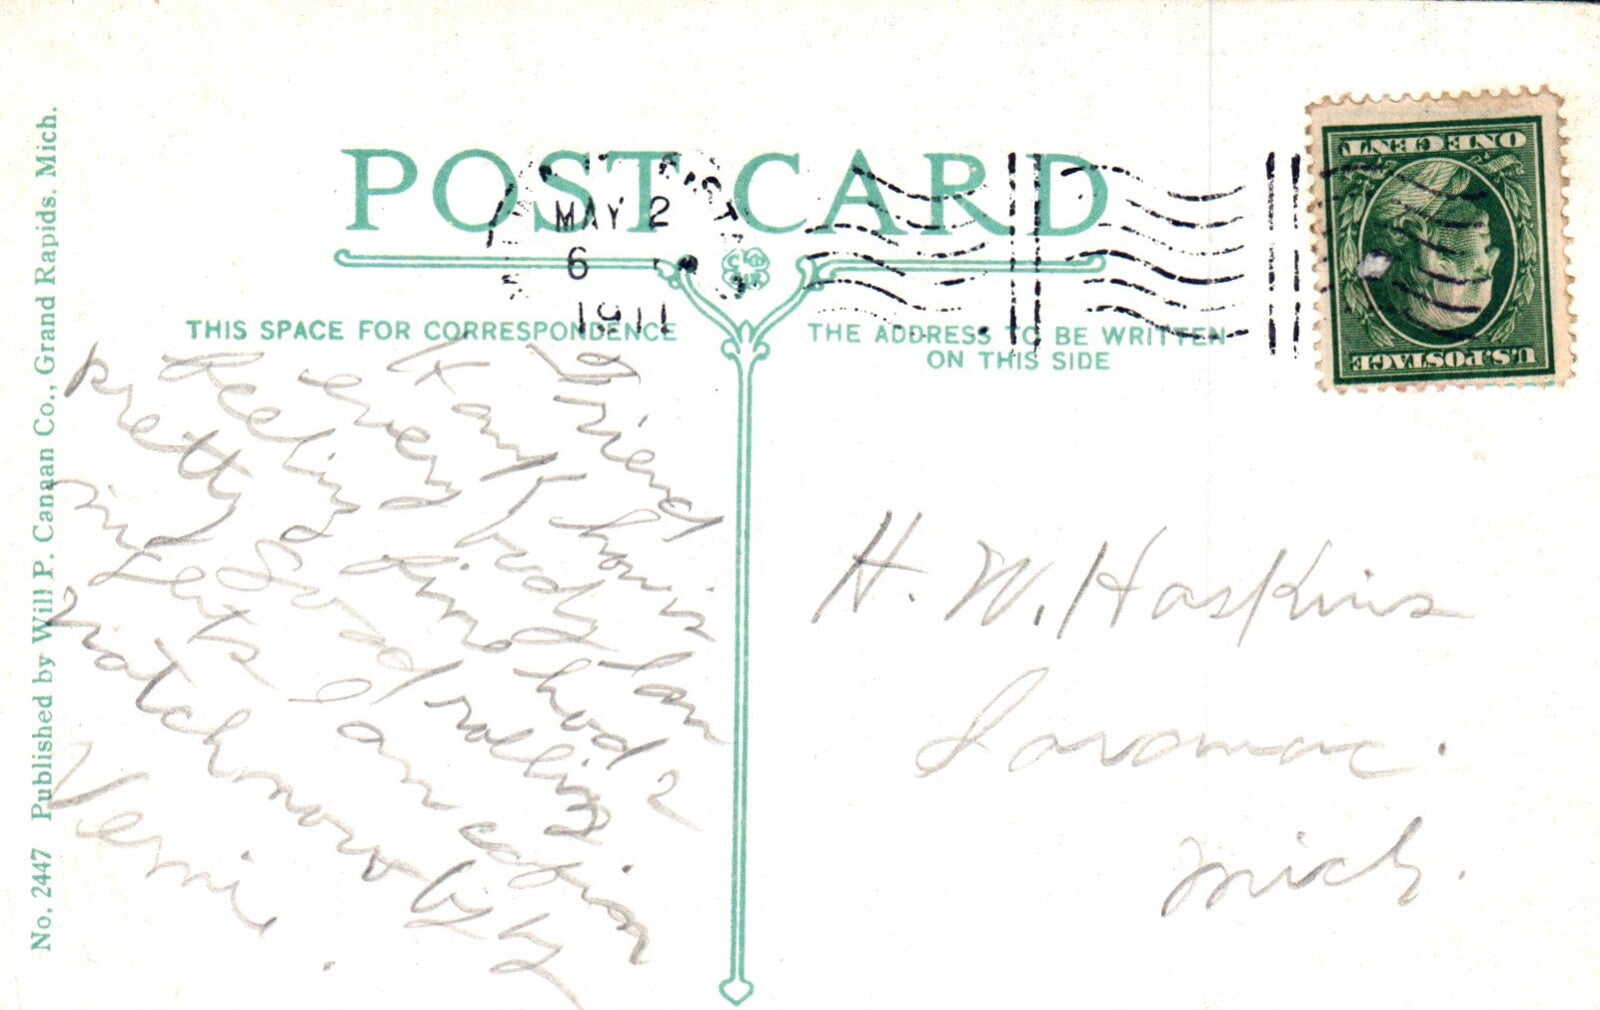 POST CARD
MAY 2
6
1911
ONE CENT
U.S. POSTAGE
THIS SPACE FOR CORRESPONDENCE
THE ADDRESS TO BE WRITTEN
ON THIS SIDE
Friend
Kanf how is
every body I am
feeling fine had 2
pretty Good rolling
in Lets I am cation
match more by by
Verni.
H. W. Haskins
Mich.
No. 2447 Published by Will P. Canaan Co., Grand Rapids, Mich.